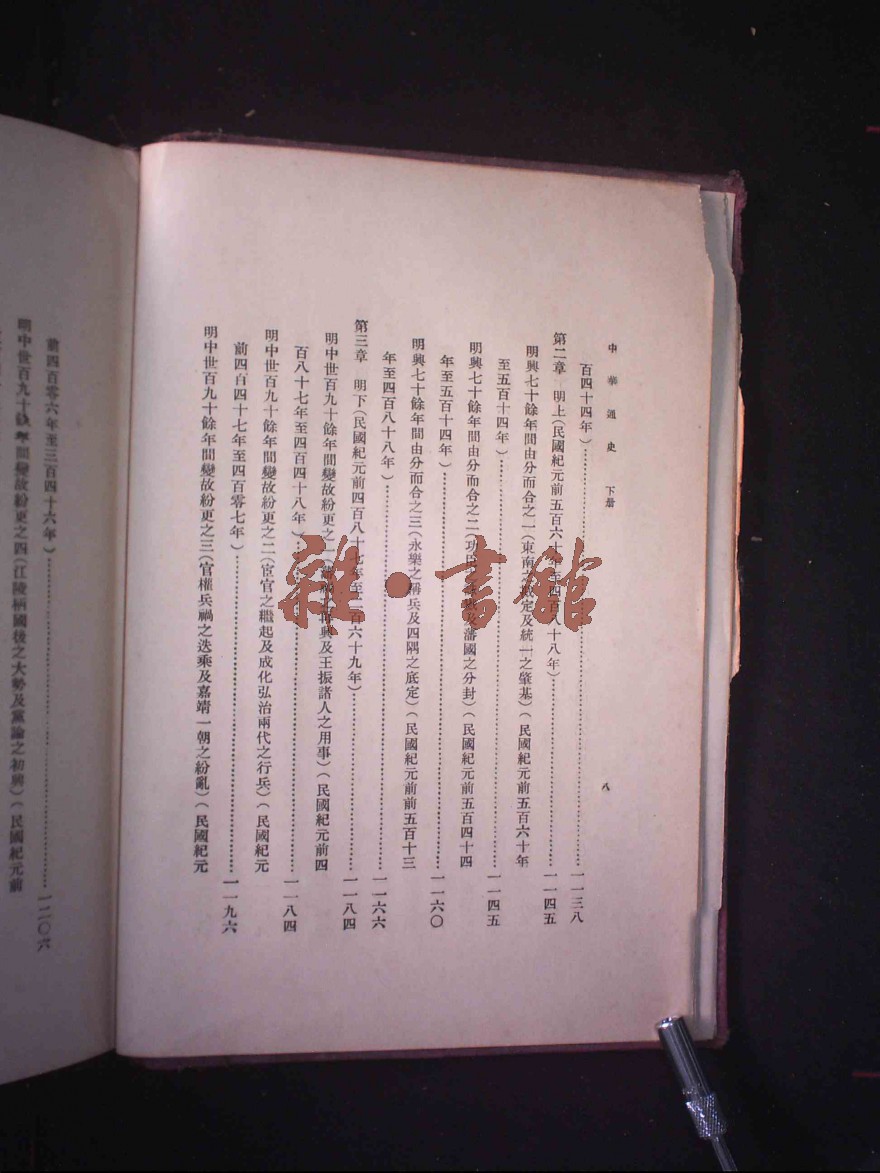 中華通史 下册
八
百四十四年）……一一三八
第二章 明上（民國紀元前五百六十年至四百八十八年）……一一四五
明興七十餘年間由分而合之一（東南之戡定及統一之肇基）（民國紀元前五百六十年
至五百十四年）……一一四五
明興七十餘年間由分而合之二（功臣之及藩國之分封）（民國紀元前五百四十四
年至五百十四年）……一一六〇
明興七十餘年間由分而合之三（永樂之稱兵及四隅之底定）（民國紀元前前五百十三
年至四百八十八年）……一一六六
第三章 明下（民國紀元前四百八十七年至二百六十九年）……一一八四
明中世百九十餘年間變故紛更之一（及王振諸人之用事）（民國紀元前四
百八十七年至四百四十八年）……一一八四
明中世百九十餘年間變故紛更之二（宦官之繼起及成化弘治兩代之行兵）（民國紀元
前四百四十七年至四百零七年）……一一九六
明中世百九十餘年間變故紛更之三（官權兵禍之迭乘及嘉靖一朝之紛亂）（民國紀元
前四百零六年至三百四十六年）……一二〇六
明中世百九十餘年間變故紛更之四（江陵柄國後之大勢及黨論之初興）（民國紀元前
雜·書館